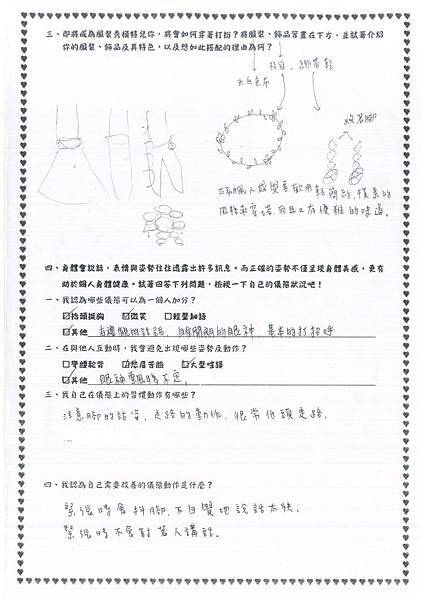 三、即將成為服裝秀模特兒你，將會如何穿著打扮？將服裝、飾品等畫在下方，並試著介紹
你的服裝、飾品及其特色，以及想如此搭配的理由為何？
項圈、綁帶鞋
米白色布
古希臘人感覺喜歡用輕簡的,樸素的
風格來穿搭,而且又有優雅的味道。
四、身體會說話，表情與姿勢往往透露出許多訊息。而正確的姿勢不僅呈現身體美感，更有
助於個人身體健康。試著回答下列問題，檢視一下自己的儀態狀況吧！
一、我認為哪些儀態可以為一個人加分？
☑抬頭挺胸 ☑微笑 ☑輕聲細語
☑其他 有禮貌的說話、的眼神、基本的打招呼
二、在與他人互動時，我會避免出現哪些姿勢及動作？
☑彎腰駝背 ☑愁眉苦臉 ☑大聲喧譁
☑其他 眼神飄忽不定。
三、我自己在儀態上的習慣動作有哪些？
注意腳的站姿、走路的動作、很常低頭走路、
…
四、我認為自己需要改善的儀態動作是什麼？
緊張時會抖腳、不自覺地說話太快、
緊張時不會對著人講話。